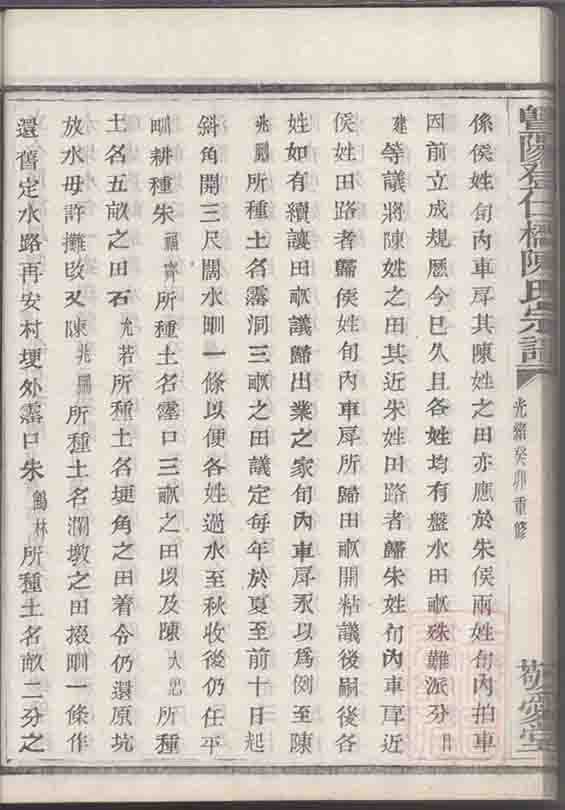 豐陽登仁橋陳氏宗譜
光緒癸卯重修
敬愛堂
係侯姓旬內車戽其陳姓之田亦應於朱侯兩姓旬內拍車
因前立成規歷今已久且各姓均有盤水田畝殊難派分日
建等議將陳姓之田其近朱姓田路者歸朱姓旬內車戽近
侯姓田路者歸侯姓旬內車戽所歸田畝開粘議後嗣後各
姓如有續讓田畝議歸出業之家旬內車戽永以為例至陳
兆鳳所種土名露洞三畝之田議定每年於夏至前十日起
斜角開三尺闊水甽一條以便各姓過水至秋收後仍任平
甽耕種朱福齊所種土名露口三畝之田以及陳大忠所種
土名五畝之田石允若所種土名埂角之田着令仍還原坑
放水毋許攤改又陳兆鳳所種土名澜墩之田掇甽一條作
還舊定水路再安村埂外露口朱鶴林所種土名畝二分之